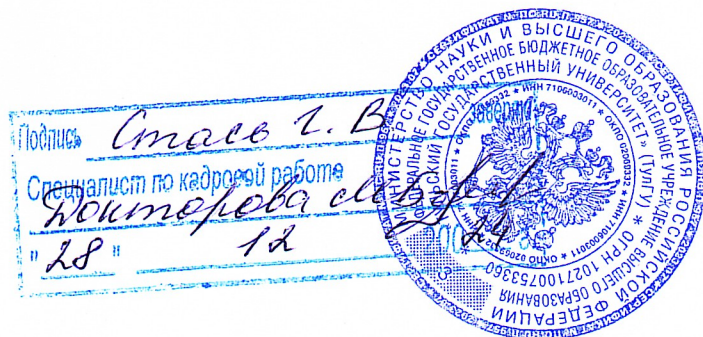 Подпись Стась Г. В. заверяю
Специалист по кадровой работе
Докторова М.Б.
"28" 12 2024
МИНИСТЕРСТВО НАУКИ И ВЫСШЕГО ОБРАЗОВАНИЯ РОССИЙСКОЙ ФЕДЕРАЦИИ
ФЕДЕРАЛЬНОЕ ГОСУДАРСТВЕННОЕ БЮДЖЕТНОЕ ОБРАЗОВАТЕЛЬНОЕ УЧРЕЖДЕНИЕ ВЫСШЕГО ОБРАЗОВАНИЯ
ГОСУДАРСТВЕННЫЙ УНИВЕРСИТЕТ» (ТулГУ) * ОГРН 1027100753360
* ИНН 7106003011 * ОКПО 02069332
3